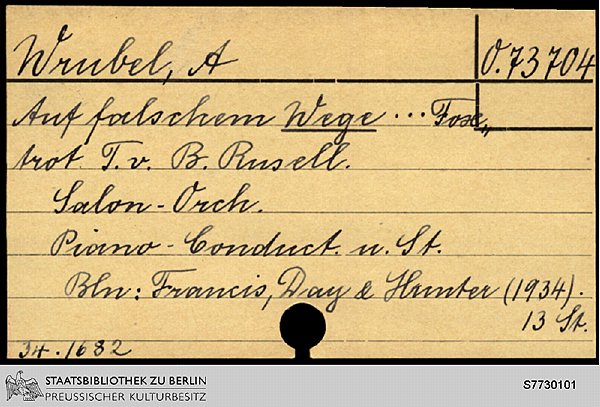 Wrubel, A
O.73704
Auf falschem Wege ... Fox„
trot T. v. B. Rusell.
Salon-Orch.
Piano-Conduct. u. St.
Bln: Francis, Day & Hunter (1934).
13 St.
34.1682
STAATSBIBLIOTHEK ZU BERLIN
PREUSSISCHER KULTURBESITZ
S7730101